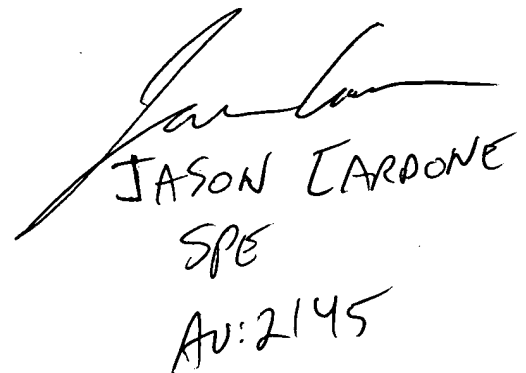 JASON CARDONE
SPE
AU:2145